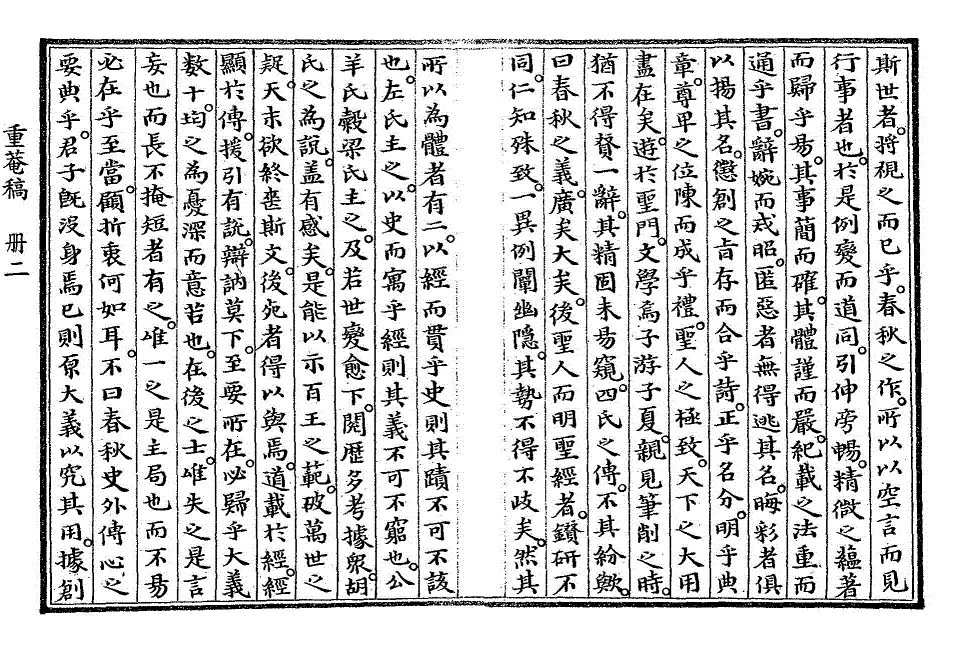 斯世者。將視之而已乎。春秋之作。所以以空言而見
行事者也。於是例變而道同。引伸旁暢。精微之蘊著
而歸乎易。其事簡而確。其體謹而嚴。紀載之法重而
通乎書。辭婉而戒昭。匿惡者無得逃其名。晦彩者俱
以揚其名。懲創之旨存而合乎詩。正乎名分。明乎典
章。尊卑之位陳而成乎禮。聖人之極致。天下之大用
盡在矣。遊於聖門。文學爲子游子夏。親見筆削之時。
猶不得賛一辭。其精固未易窺。四氏之傳。不其紛歟。
曰春秋之義。廣矣大矣。後聖人而明聖經者。鑚研不
同。仁知殊致。一異例闡幽隱。其勢不得不歧矣。然其
所以為體者有二。以經而貫乎史則其蹟不可不該
也。左氏主之。以史而寓乎經則其義不可不窮也。公
羊氏糓梁氏主之。及若世變愈下。閱歷多考據衆。胡
氏之為説。盖有感矣。是能以示百王之範。破萬世之
疑。天未欲終喪斯文。後死者得以與焉。道載於經。經
顯於傳。援引有説。辯訥莫下。至要所在。必歸乎大義
数十。均之為憂深而意苦也。在後之士。唯失之是言
妄也而長不掩短者有之。唯一之是主局也而不易
必在乎至當。顧折衷何如耳。不曰春秋史外傳心之
要典乎。君子旣沒身焉已則原大義以究其用。據創
重菴稿 册二